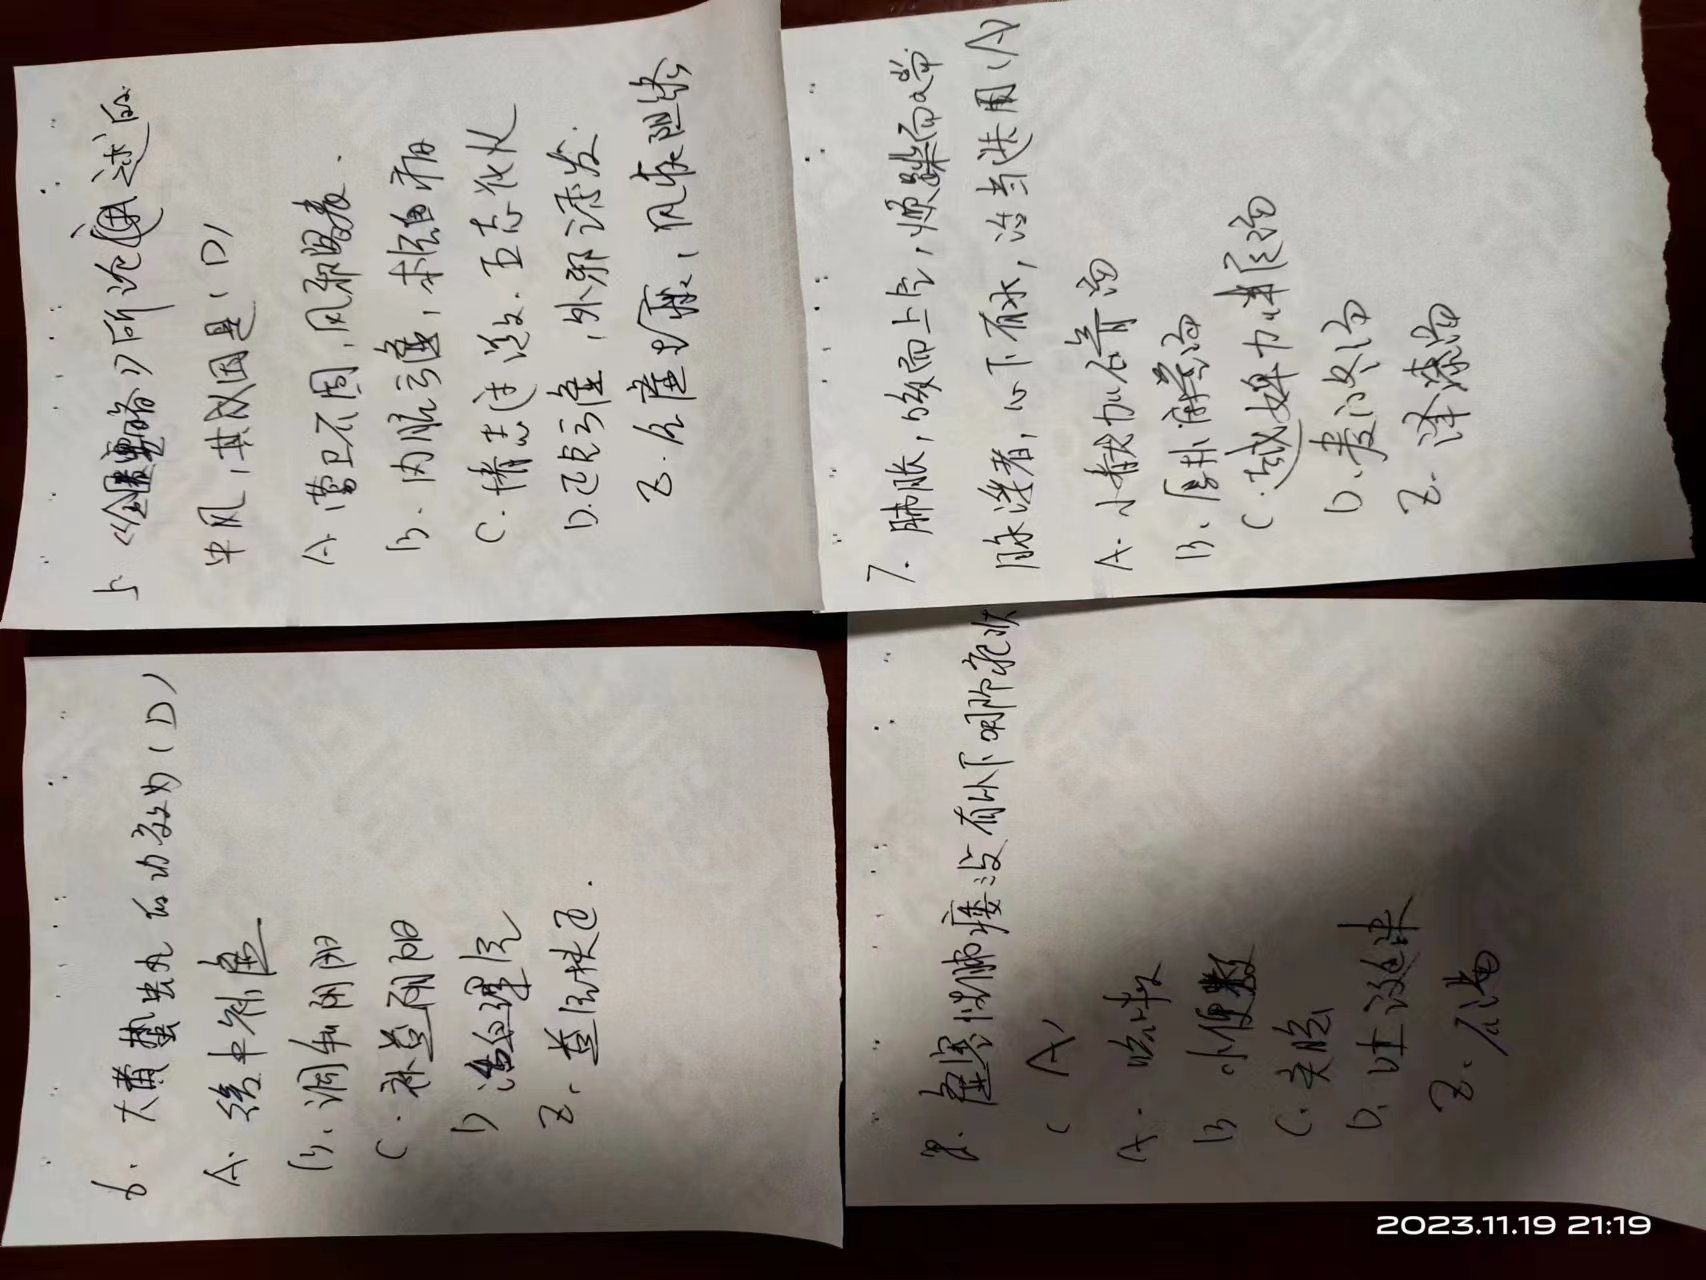 5、《金匮要略》所论述的
中风,其成因是(D)
A.营卫不固,风邪袭表.
B.内脏亏虚,本经自病
C.情志过激.五志化火
D.正气亏虚,外邪诱发.
E.血虚,风束阻络
6.大黄䗪虫丸的功效为(D)
A.缓中补虚
B.调和阴阳
C.补益阴阳
D活血理气
E.益气扶正.
7.肺胀,咳而上气,烦躁而喘
脉浮者,心下有水,治当选用(A)
A.小青龙加石膏汤
B.厚朴麻黄汤
C.越婢加半夏汤
D.麦门冬汤
E.泽漆汤
8.虚寒性肺痿没有以下哪所症状
(A)
A.咳喘
B小便数
C.头眩
D.吐涎沫
2023.11.19 21:19